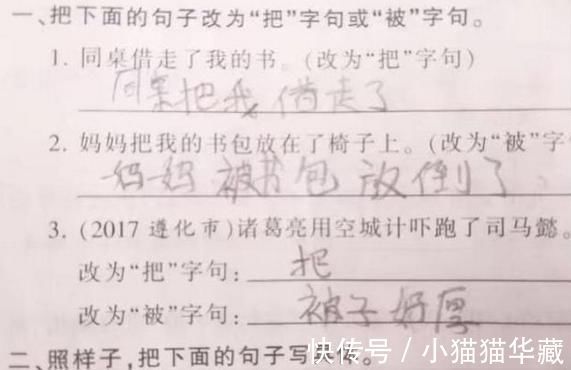 一、把下面的句子改为“把”字句或“被”字句。
1. 同桌借走了我的书。(改为“把”字句)
同桌把我借走了
2. 妈妈把我的书包放在了椅子上。(改为“被”字
妈妈被书包放倒了
3. (2017 遵化市)诸葛亮用空城计吓跑了司马懿。
改为“把”字句：把
改为“被”字句：被子好厚
二、照样子,把下面的句子写具体。
快传号／小猫猫华藏